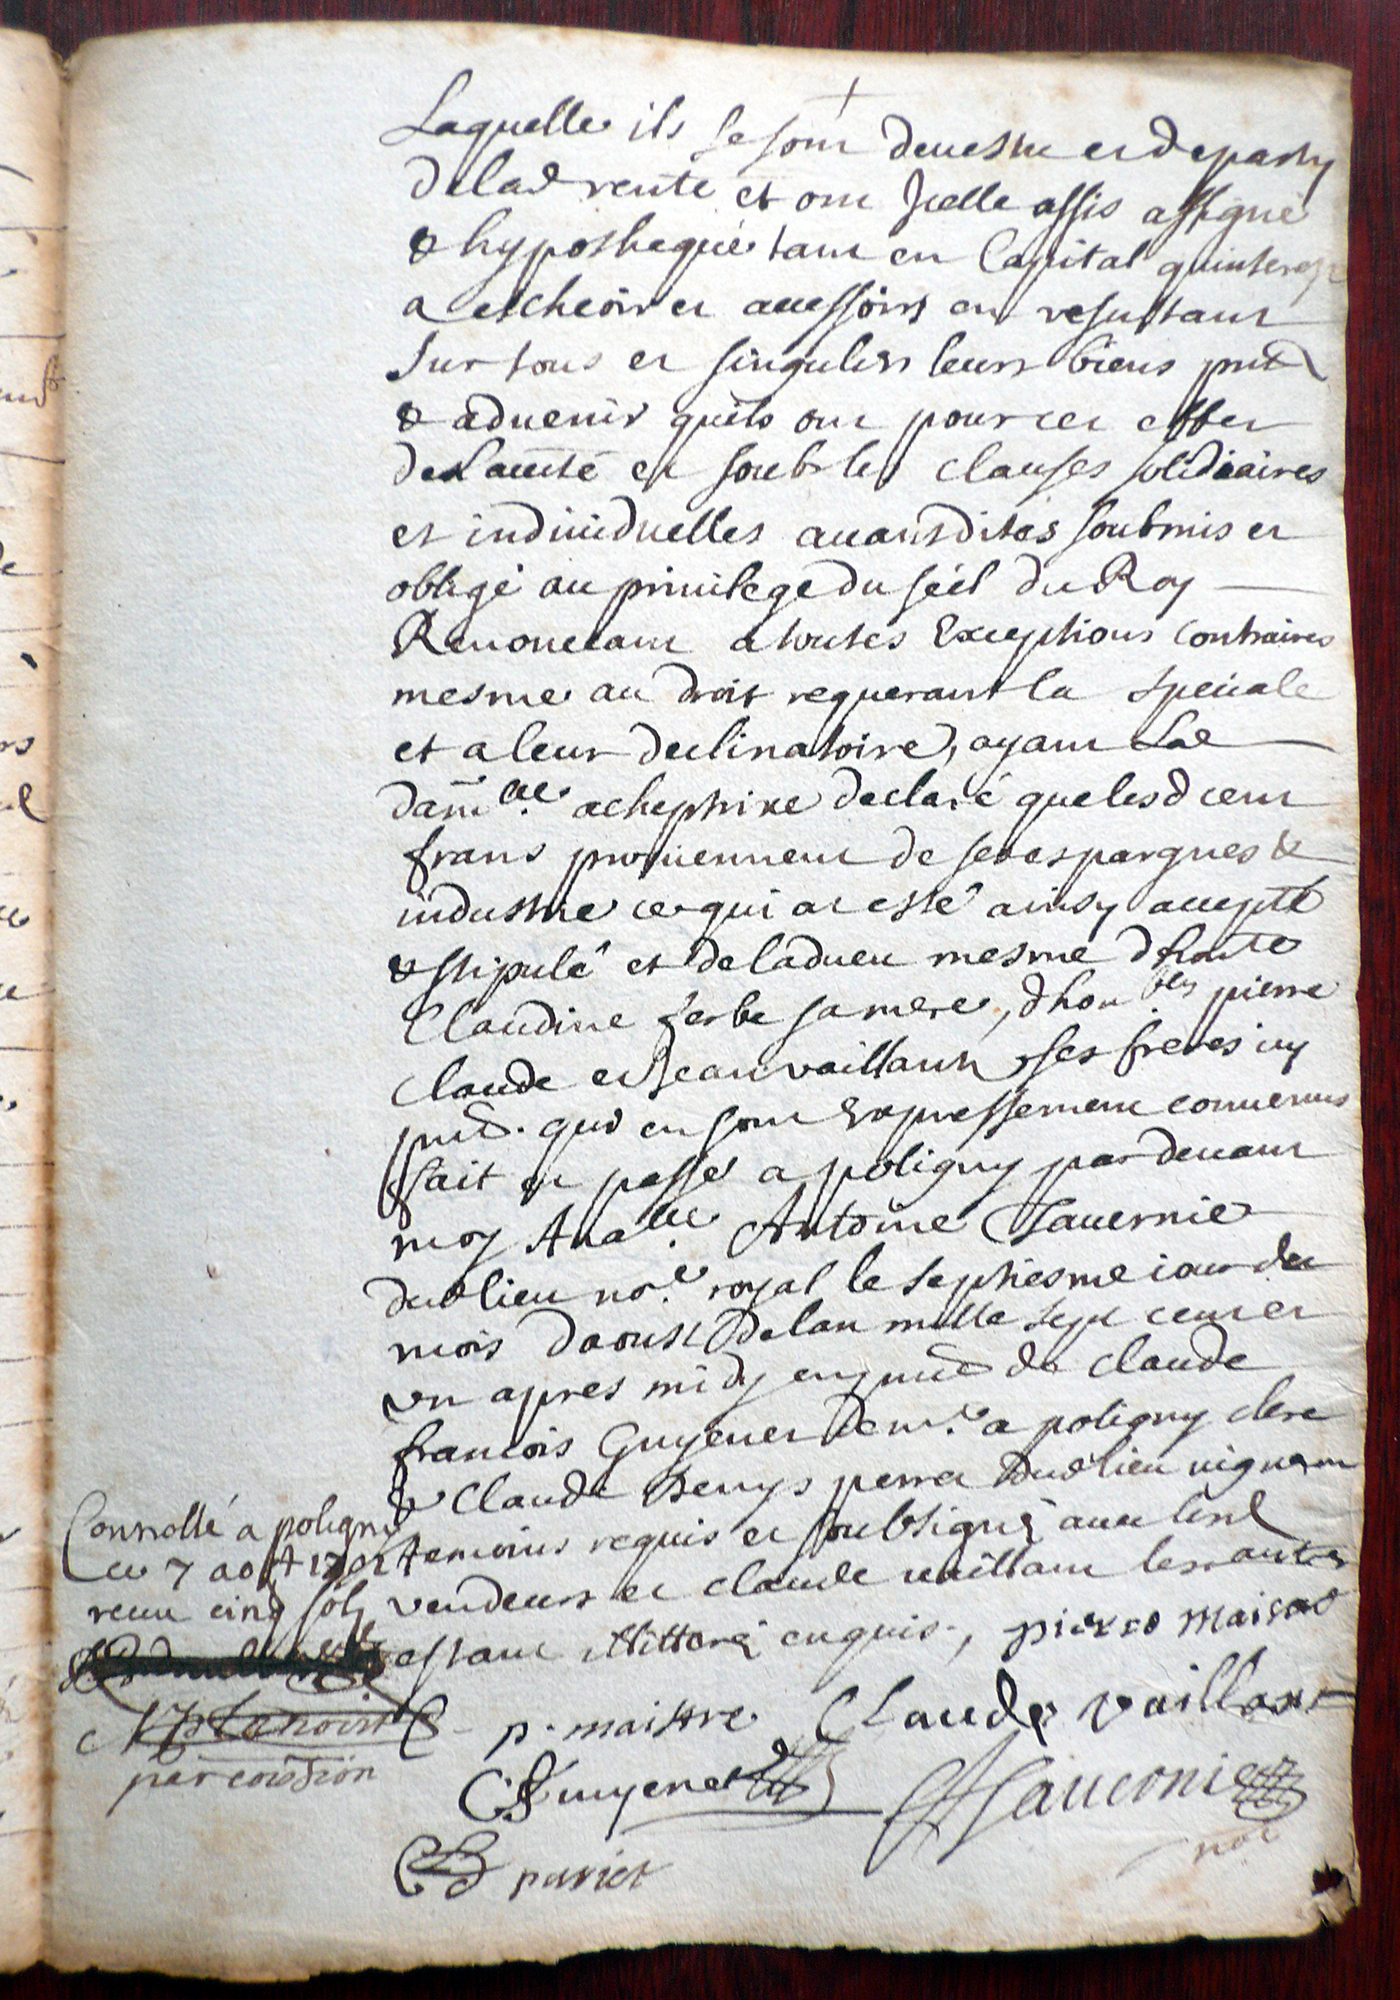 Laquelle ils se sont deuestu et departy
de lad vente et ont Icelle assis assigné
& hypothequé tant en Capital quinterest
a escheoir et accessoirs en resultant
Sur tous et singuliers leurs biens pnt
& aduenir quils ont pour cet effet
de Lautté et soub les clauses solidiaires
et indiuiduelles auantdites soubmis et
obligé au priuilege du séel du Roy
Renonceant a toutes Exceptions Contraires
mesme au droit requerant la speciale
et a leur declinatoire, ayant Lad
dam.lle acheptrixe declaré que lesd cent
frans prouiennent de ses espargnes &
industrie ce qui at esté ainsy accepté
& stipulé et de laduеu mesme d'honte
Claudine ferbe sa mere, d'hon.bles pierre
Claude et Jean vaillant ses freres icy
pnt. qui en sont Expressement conuenus
ffait et passé a poligny par deuant
moy Anatlle Antoine Sauernie
dud lieu no.e royal le septiesme iour du
mois daoust de lan mille sept cent et
vn apres midy en pnce de Claude
francois Guyenet dem.t a poligny clerc
& Claude Denys perret dud lieu vigneron
temoins requis et soubsignés auec lesd
vendeurs et claude vaillant les autres
estant illitterés enquis, pierre maistre
p. maistre Claude vaillant
C f Guyenet A A Sauconie
not
C D parriet
Controllé a poligny
ce 7 aost 1701
receu cinq sols
par comission